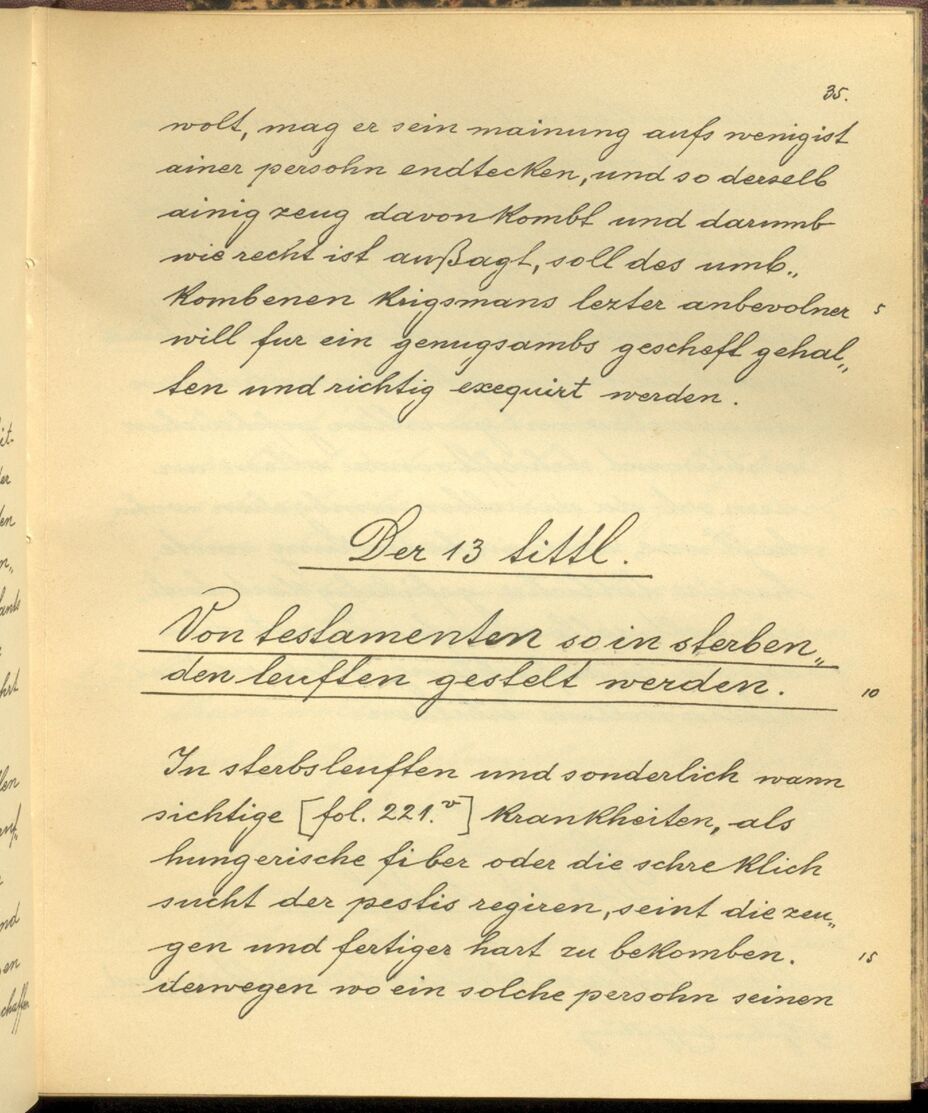 35.
wolt, mag er sein mainung aufs wenigist
ainer persohn endtecken, und so derselb
ainig zeug davon kombt und darumb
wie recht ist außagt, soll des umb„
kombenen krigsmans lezter anbevolner 5
will fur ein genugsambs gescheft gehal„
ten und richtig exequirt werden.
Der 13 tittl.
Von testamenten so in sterben„
den leuften gestelt werden. 10
In sterbsleuften und sonderlich wann
sichtige [fol. 221.v] krankheiten, als
hungerische fiber oder die schreklich
sucht der pestis regiren, seint die zeu„
gen und fertiger hart zu bekomben. 15
derwegen wo ein solche persohn seinen